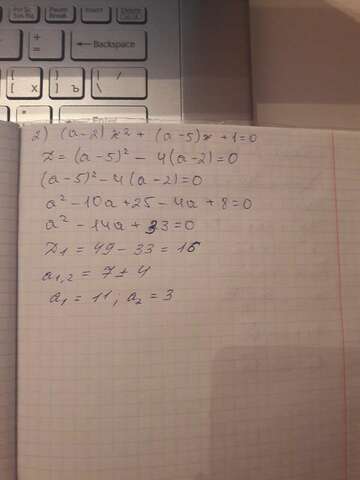 Backspace
Enter
2) (a-2) x² + (a-5)x +1=0
D = (a-5)² - 4(a-2)=0
(a-5)² - 4(a-2)=0
a² - 10a + 25 - 4a + 8=0
a² - 14a + 33=0
D₁ = 49 - 33 = 16
a₁,₂ = 7 ± 4
a₁ = 11; a₂ = 3